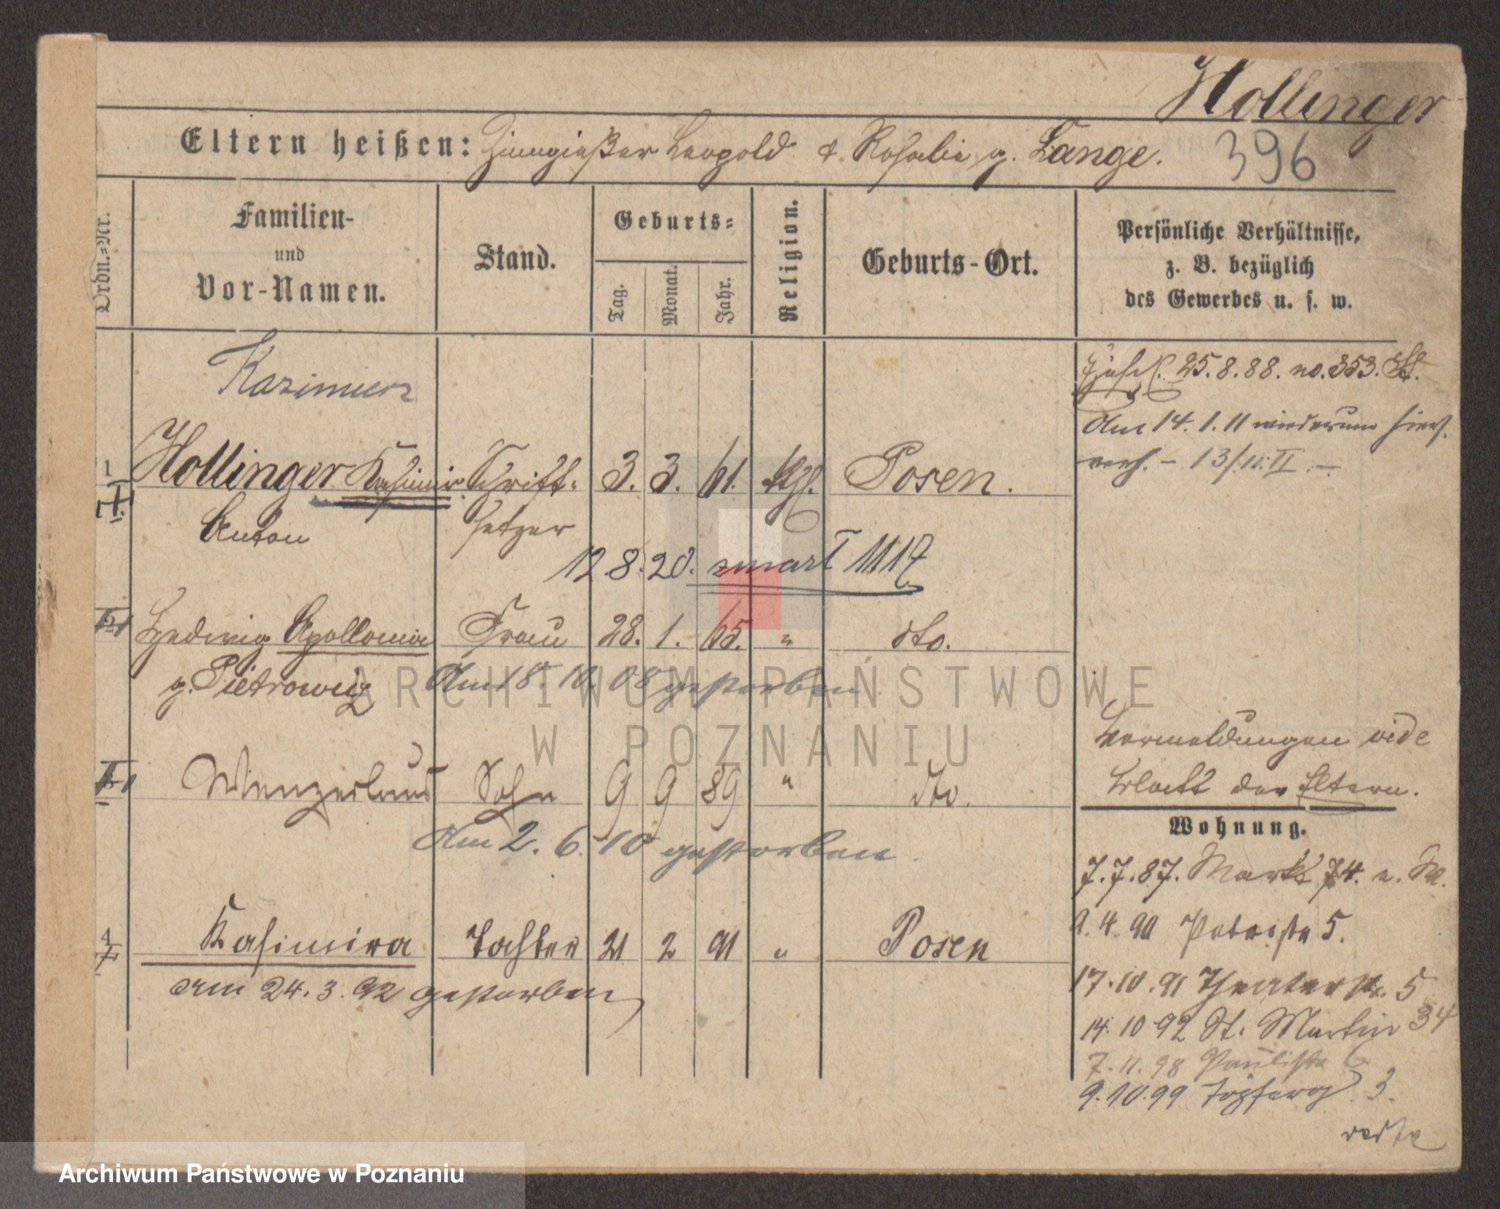 Hollinger
Eltern heißen: Zinngießer Leopold & Rosalie g. Lange. 396
Ordn.-Nr.
Familien- und Vor-Namen.
Stand.
Geburts-
Tag. Monat. Jahr.
Religion.
Geburts-Ort.
Persönliche Verhältnisse, z. B. bezüglich des Gewerbes u. s. w.
Kazimierz
25.8.88. no. 353.
Am 14.1.11 wiederum hier
1 Hollinger Kasimir Schrift- 3. 3. 61. kth. Posen.
Anton setzer
12.8.20. zmarł 1117
Hedwig Apollonia Frau 28. 1. 65. " dto.
g. Pietrowicz Am 18.10.08 gestorben
Sohn 9 9 89 " dto.
Am 2.6.10 gestorben
Vermeldungen vide
Blatt der Eltern.
Wohnung.
7.7.87. Markt 74.
4 Kasimira Tochter 21 2 91 " Posen
am 24.3.92 gestorben
4.90 Petristr 5.
17.10.91 Theaterstr. 5
14.10.92 St. Martin 34
7.11.98 Paulistr 6
9.10.99 Töpferg. 3.
ARCHIWUM PAŃSTWOWE
W POZNANIU
Archiwum Państwowe w Poznaniu